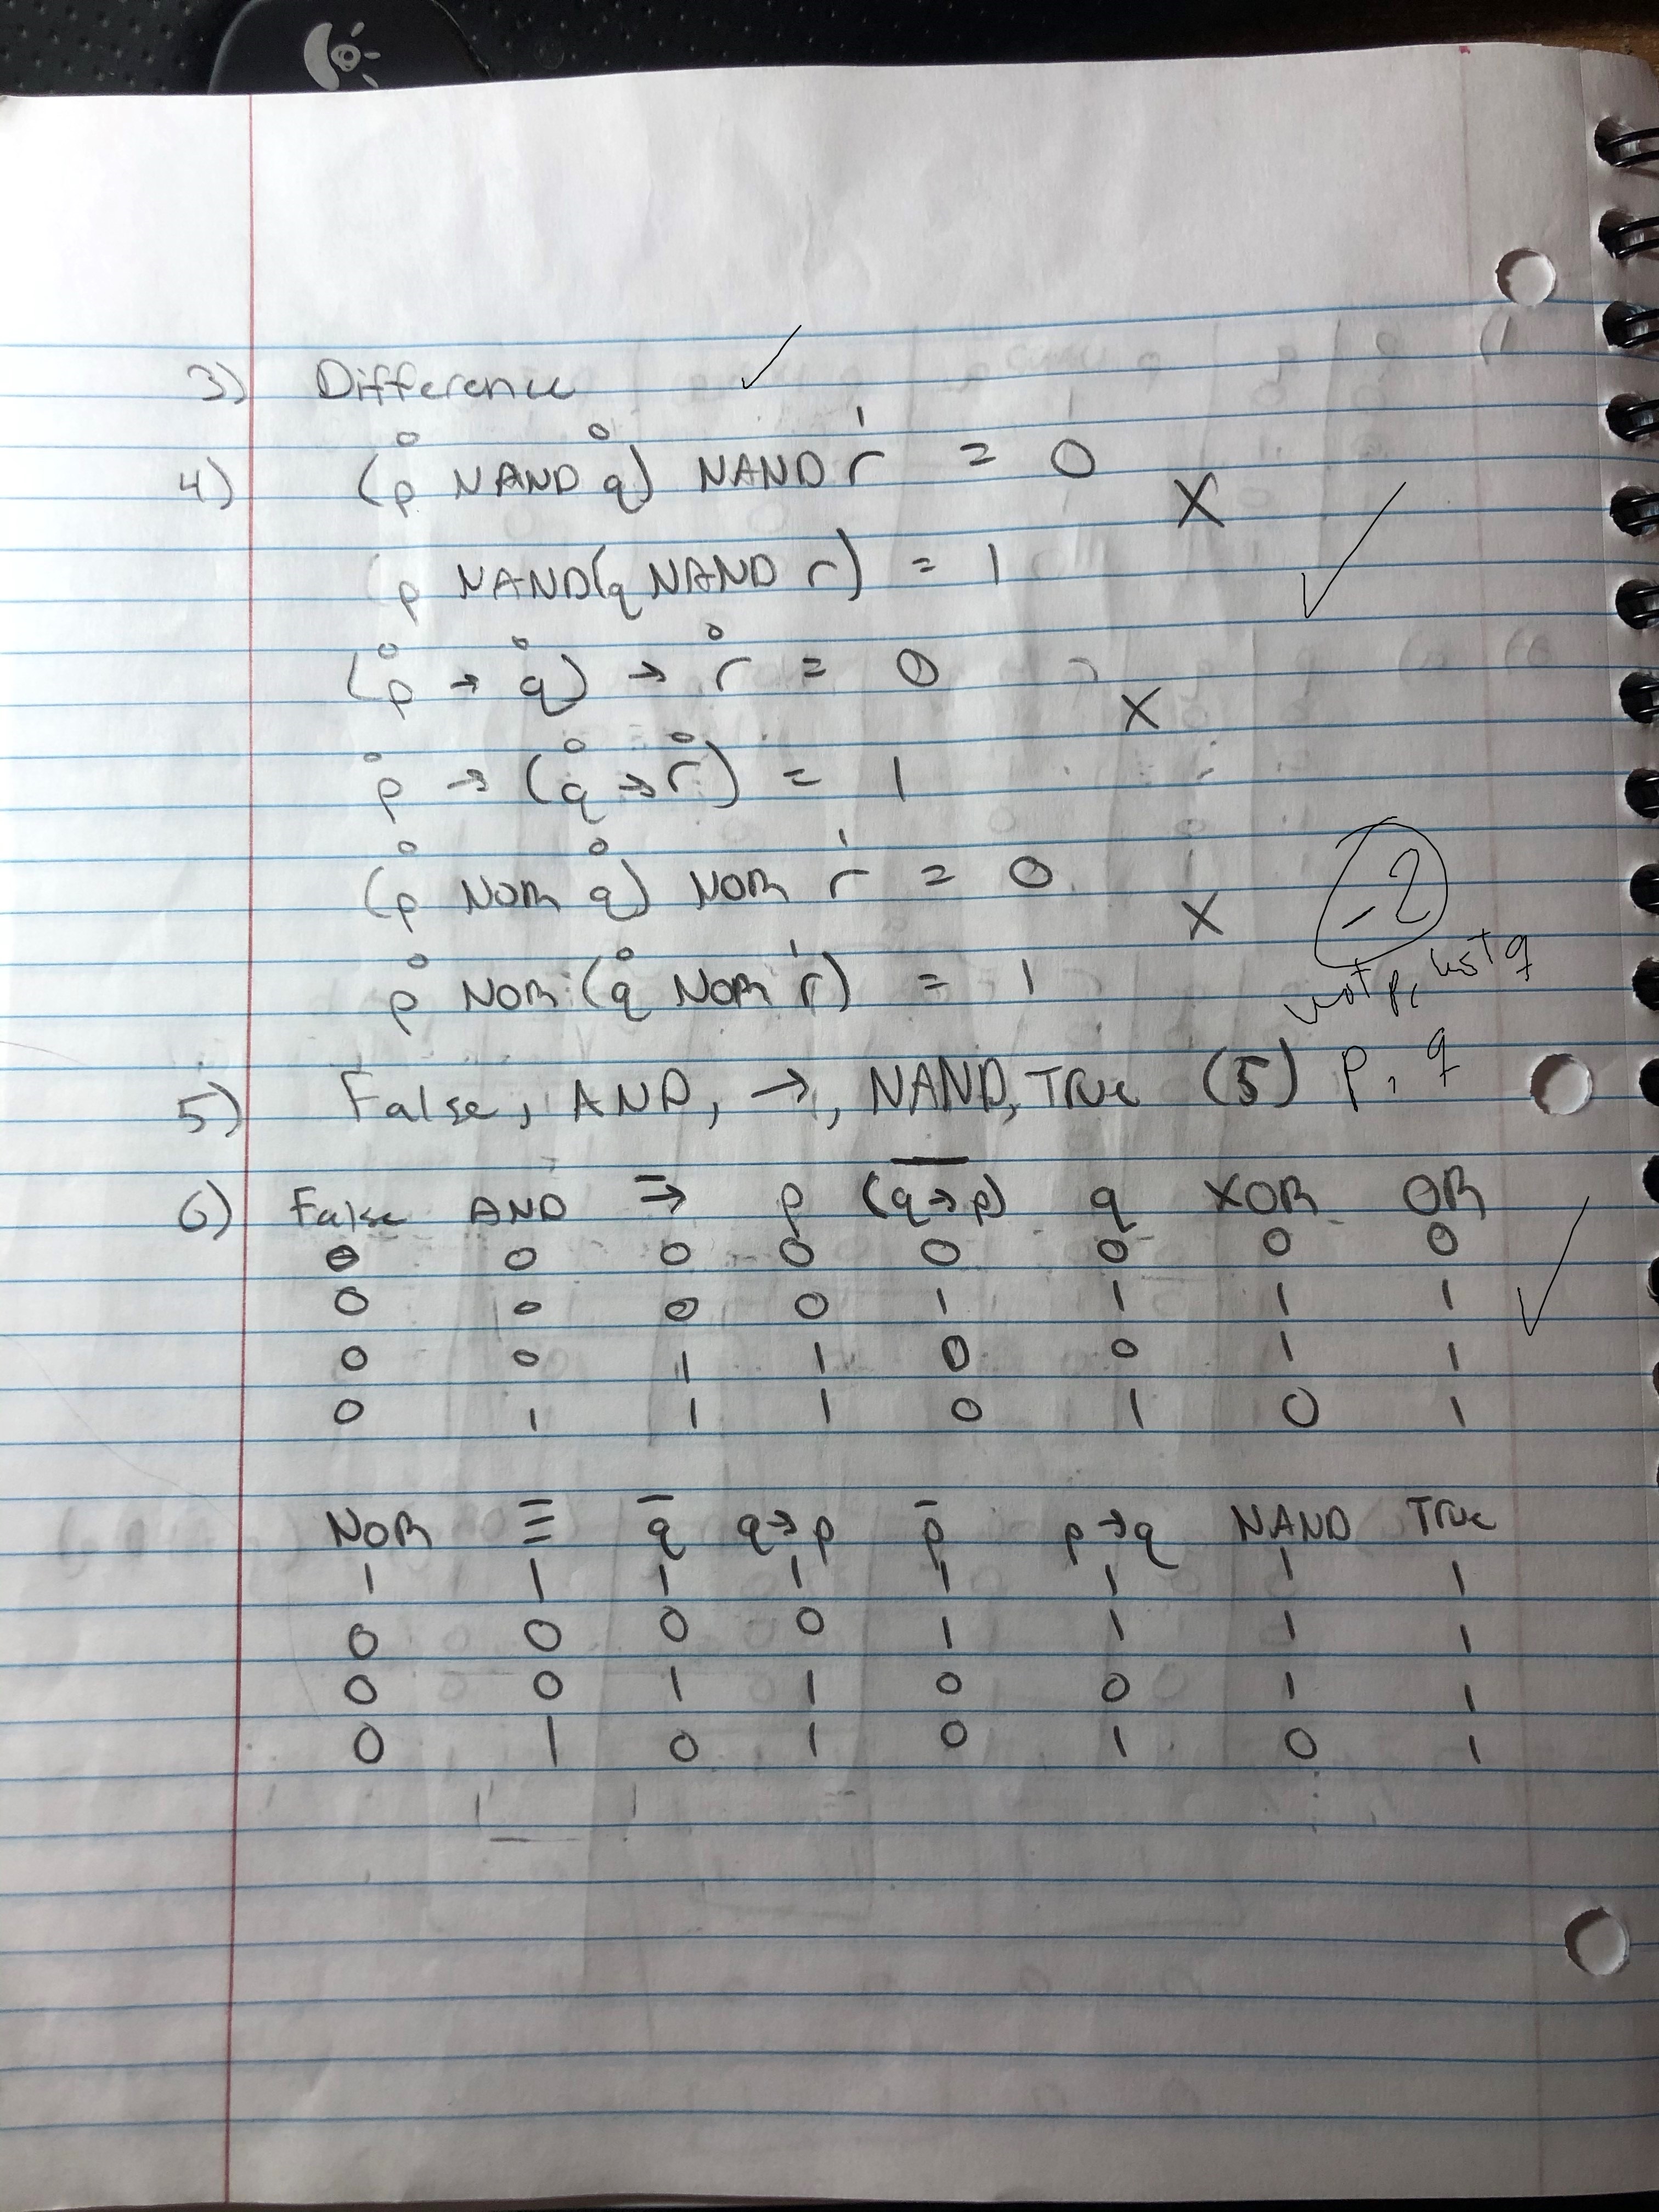 3) Difference ✓
0 0 1
4) (p NAND q) NAND r = 0
X
p NAND(q NAND r) = 1 ✓
0 0 0
(p → q) → r = 0
X
0 0 0
p → (q → r) = 1
0 0 1
(p NOR q) NOR r = 0
X -2
0 0 1
p NOR (q NOR r) = 1
not p, not q
5) False, AND, →, NAND, True (5) p, q
6) False AND ⇒̅ p (q→p)̅ q XOR OR
0 0 0 0 0 0 0 0
0 0 0 0 1 1 1 1 ✓
0 0 1 1 0 0 1 1
0 1 1 1 0 1 0 1
NOR ≡ q̅ q→p p̅ p→q NAND True
1 1 1 1 1 1 1 1
0 0 0 0 1 1 1 1
0 0 1 1 0 0 1 1
0 1 0 1 0 1 0 1